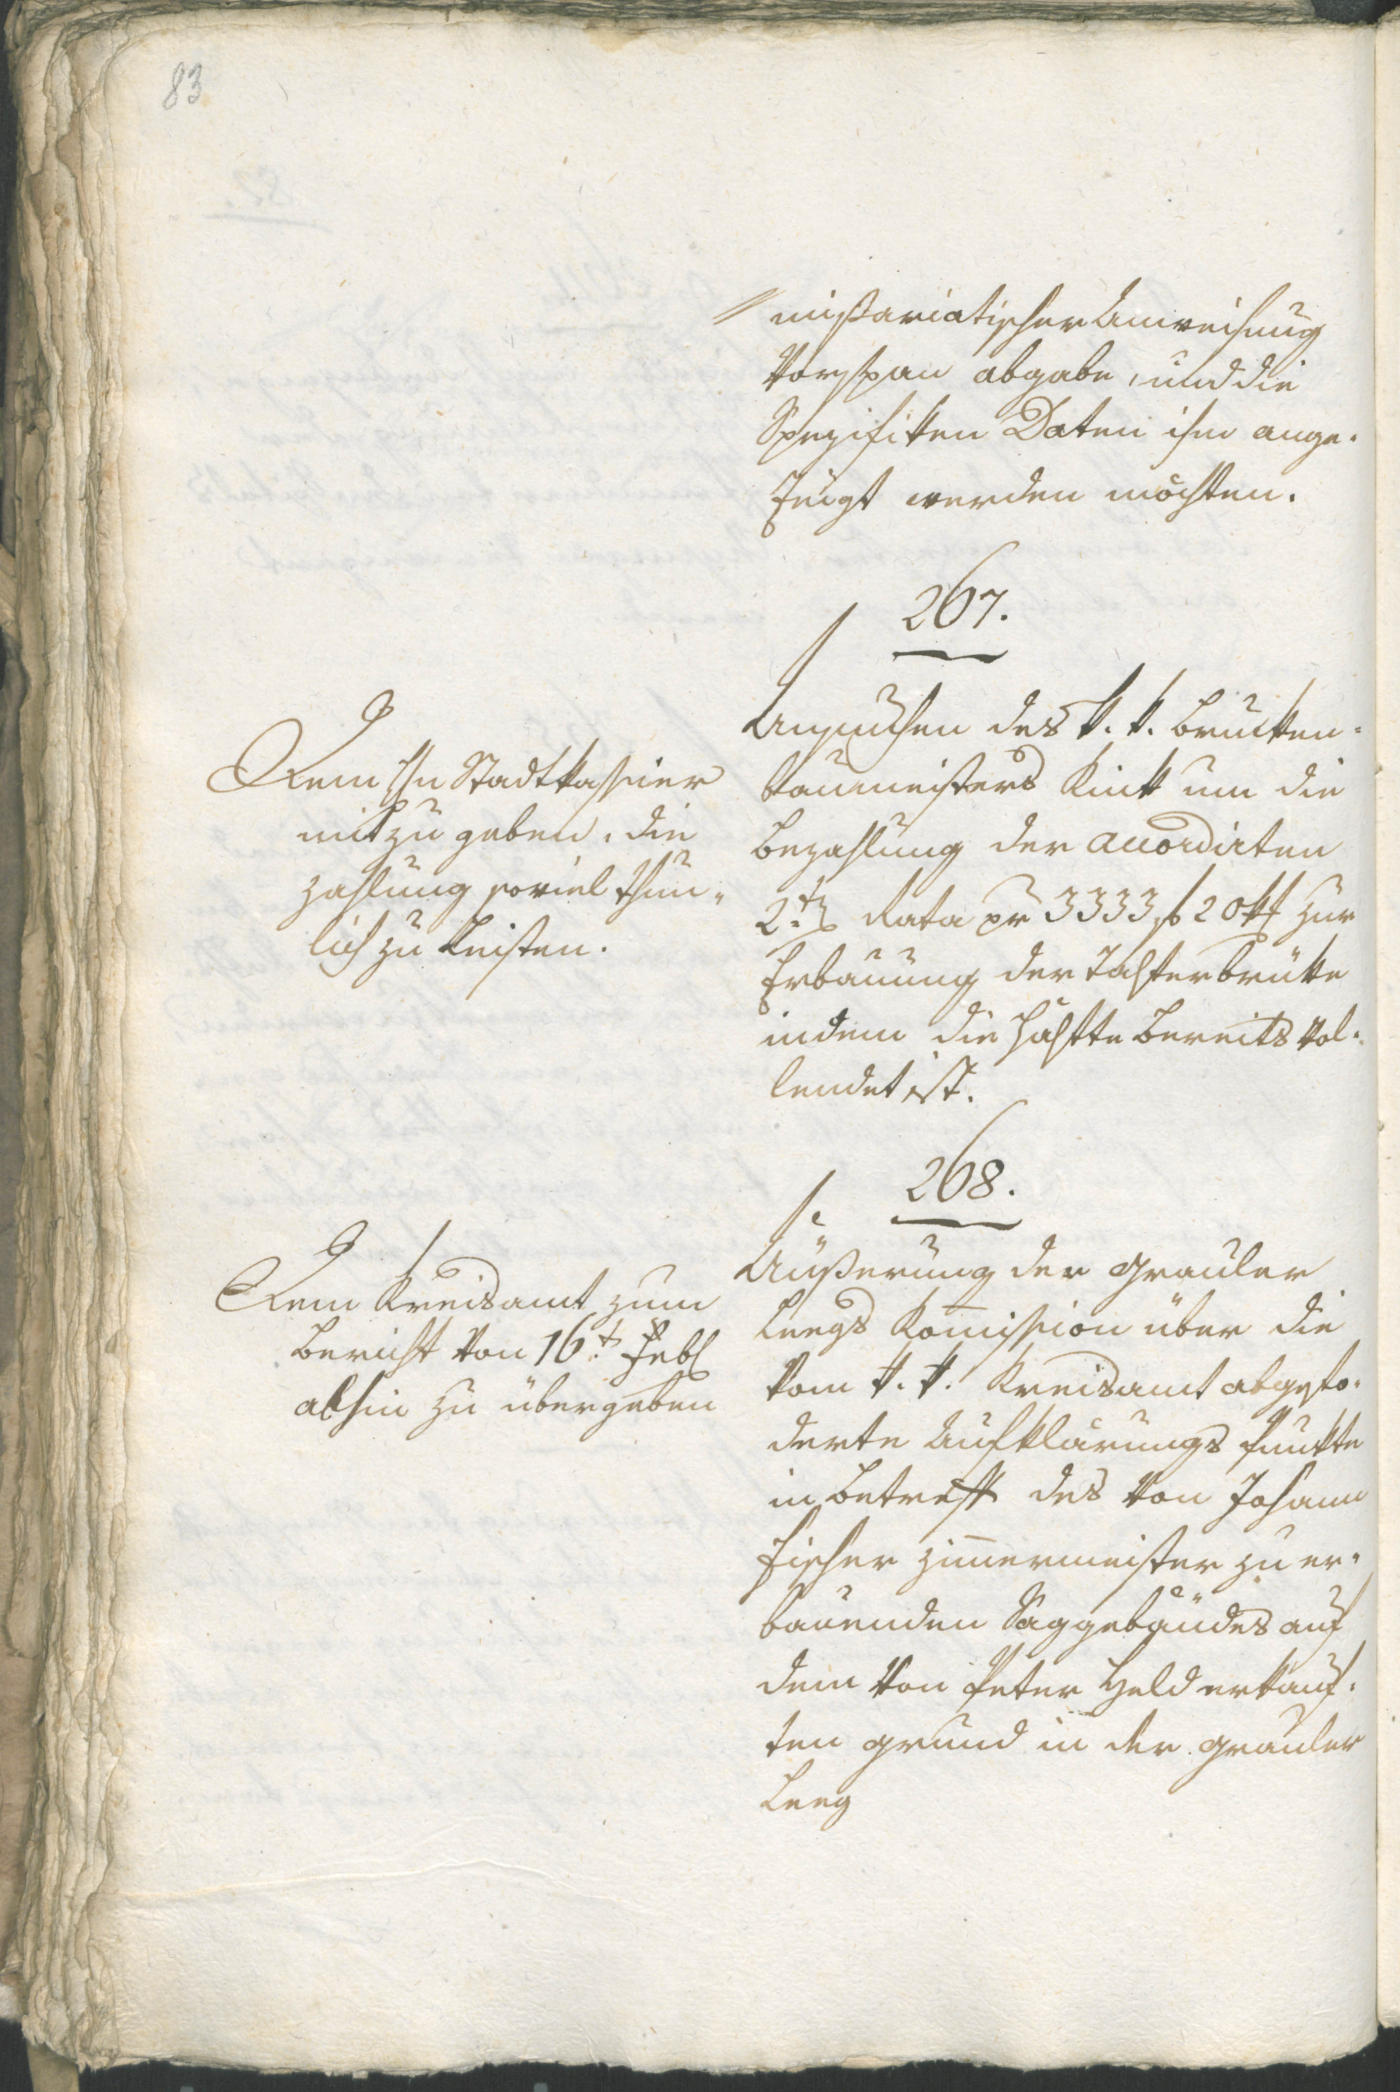 83
missariatischer Anweisung
Vorspan abgabe, und die
Spezifiken Daten ihm ange-
zeigt werden möchten.
267.
Ansuchen des k. k. Brucken-
baumeisters Kink um die
Bezahlung der accordirten
2.ten Rata pr 3333 f 20 kr zur
Erbauung der Talferbrüke
indem die Hälfte bereits vol-
lendet ist.
Dem Hrn Stadtkassier
mitzugeben, die
Zahlung soviel thun-
lich zu leisten.
268.
Äußerung der Grauler
Leegs Komission über die
vom k. k. Kreisamt abgefo-
derte Aufklärungs Punkte
in betreff des von Johann
Fischer Zimermeister zu er-
bauenden Säggebäudes auf
dem von Peter Held erkauf-
ten Grund in der Grauler
Leeg
Dem Kreisamt zum
Bericht von 16.t Febr
abhin zu übergeben